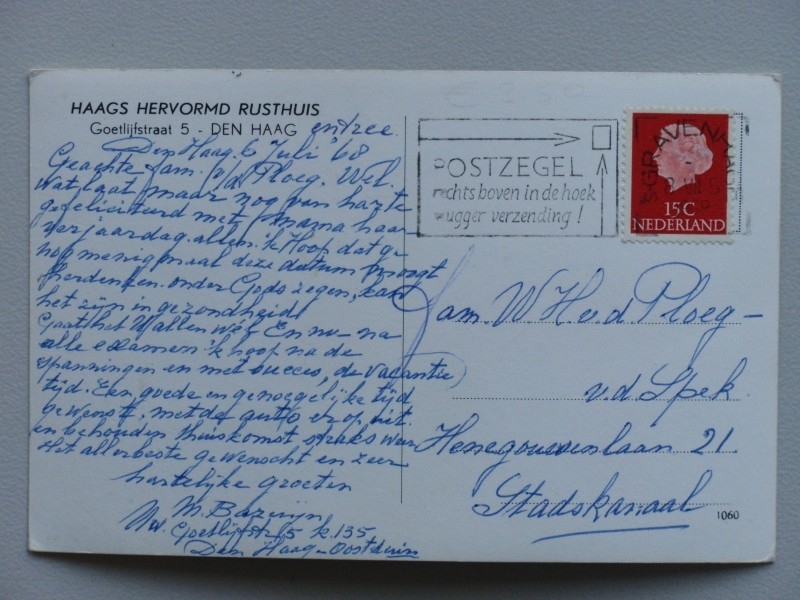 HAAGS HERVORMD RUSTHUIS
Goetlijfstraat 5 - DEN HAAG
entree
Den Haag, 6 Juli '68
Geachte fam. v/d Ploeg. Wel.
wat laat maar nog van harte
gefeliciteerd met Mama haar
verjaardag allen. 'k Hoop dat ge
nog menigmaal deze datum moogt
herdenken onder Gods zegen, kan
het zijn in gezondheid!
Gaat het U allen wel? En nu na
alle examens 'k hoop na de
spanningen en met succes, de vacantie
tijd. Een goede en genoegelijke tijd
gewenst, met de auto er op uit.
en behouden thuiskomst straks weer
Het allerbeste gewenscht en zeer
hartelijke groeten
M. Bazuijn
Mw. Goetlijfstr 5 k. 135
Den Haag-Oostduin
POSTZEGEL
rechts boven in de hoek
vlugger verzending!
'S-GRAVENHAGE
15 C
NEDERLAND
Fam. W H v. d Ploeg-
v.d Spek.
Henegouwenlaan 21
Stadskanaal
1060